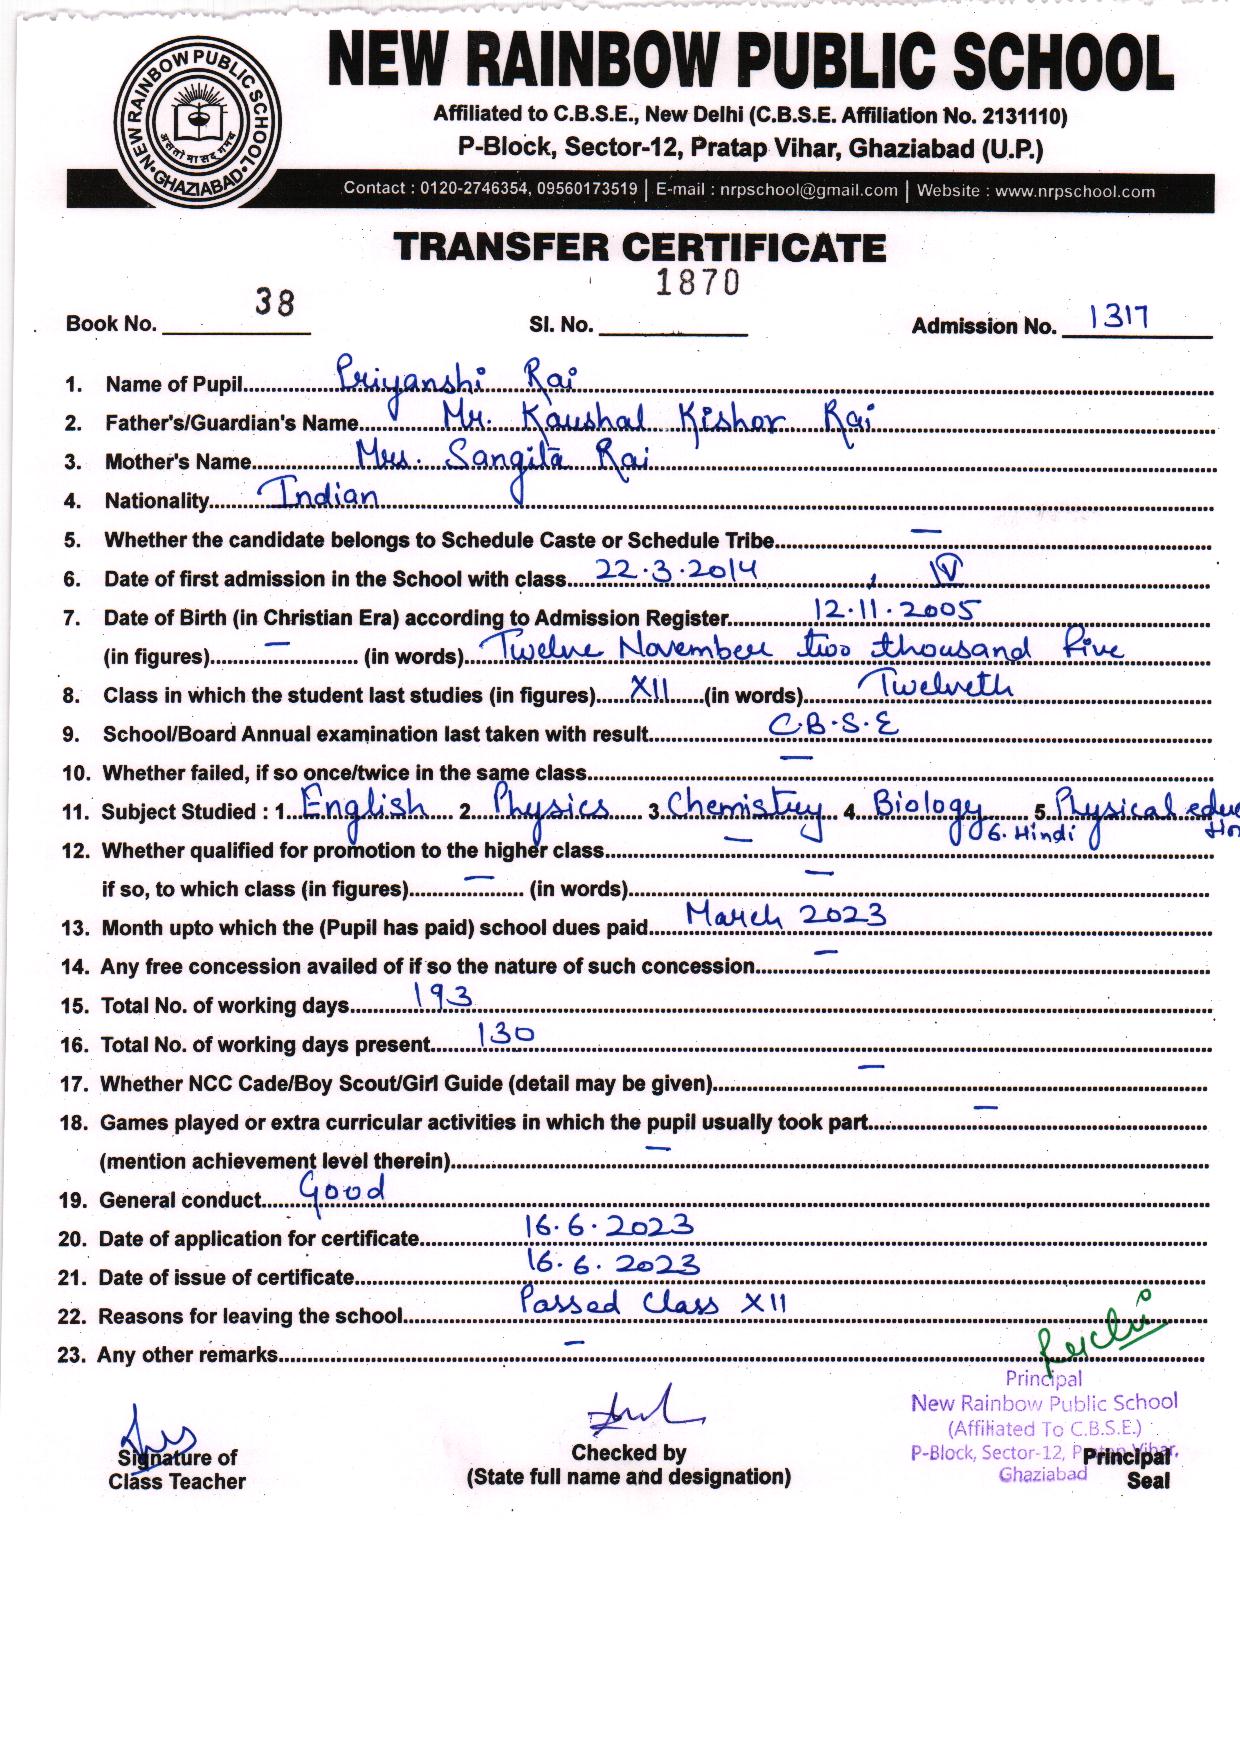 NEW RAINBOW PUBLIC SCHOOL
NEW RAINBOW PUBLIC SCHOOL
GHAZIABAD
असतो मा सद् गमय
Affiliated to C.B.S.E., New Delhi (C.B.S.E. Affiliation No. 2131110)
P-Block, Sector-12, Pratap Vihar, Ghaziabad (U.P.)
Contact : 0120-2746354, 09560173519 | E-mail : nrpschool@gmail.com | Website : www.nrpschool.com
TRANSFER CERTIFICATE
Book No. 38 Sl. No. 1870 Admission No. 1317
1. Name of Pupil Priyanshi Rai
2. Father's/Guardian's Name Mr. Kaushal Kishor Rai
3. Mother's Name Mrs. Sangita Rai
4. Nationality Indian
5. Whether the candidate belongs to Schedule Caste or Schedule Tribe —
6. Date of first admission in the School with class 22.3.2014, IV
7. Date of Birth (in Christian Era) according to Admission Register 12.11.2005
(in figures) — (in words) Twelve November two thousand Five
8. Class in which the student last studies (in figures) XII (in words) Twelveth
9. School/Board Annual examination last taken with result C.B.S.E
10. Whether failed, if so once/twice in the same class —
11. Subject Studied : 1. English 2. Physics 3. Chemistry 4. Biology 5. Physical edu
6. Hindi
12. Whether qualified for promotion to the higher class —
if so, to which class (in figures) — (in words) —
13. Month upto which the (Pupil has paid) school dues paid March 2023
14. Any free concession availed of if so the nature of such concession —
15. Total No. of working days 193
16. Total No. of working days present 130
17. Whether NCC Cade/Boy Scout/Girl Guide (detail may be given) —
18. Games played or extra curricular activities in which the pupil usually took part —
(mention achievement level therein) —
19. General conduct Good
20. Date of application for certificate 16.6.2023
21. Date of issue of certificate 16.6.2023
22. Reasons for leaving the school Passed Class XII
23. Any other remarks —
Principal
New Rainbow Public School
(Affiliated To C.B.S.E.)
P-Block, Sector-12, Pratap Vihar,
Ghaziabad
Signature of
Class Teacher
Checked by
(State full name and designation)
Principal
Seal